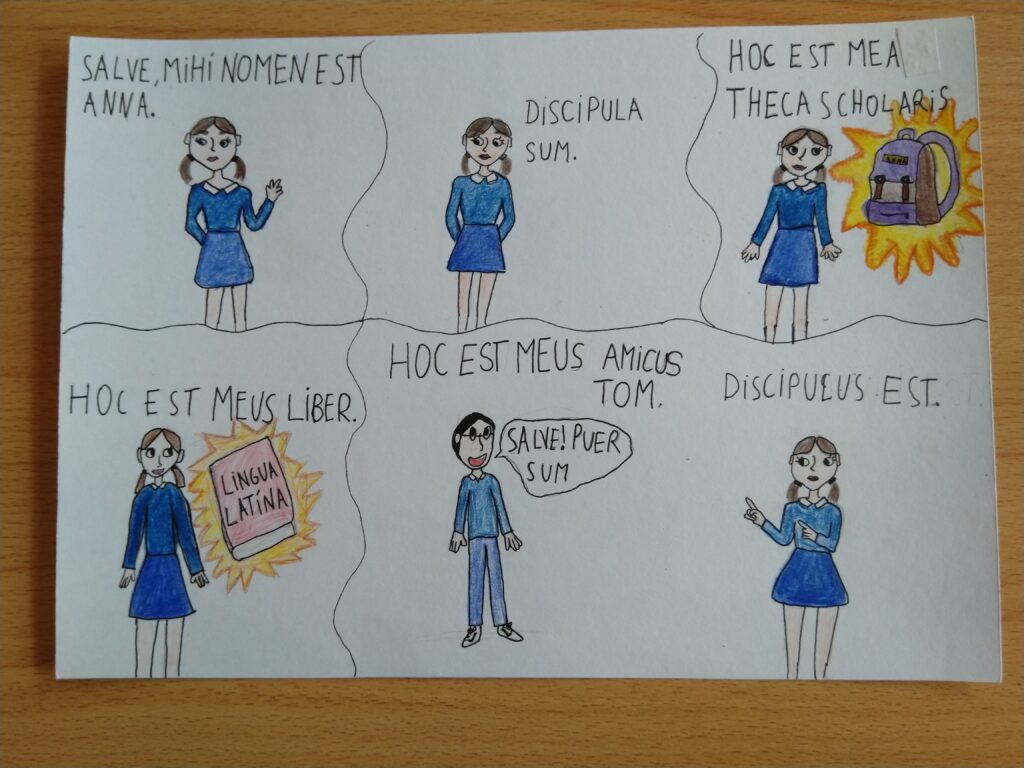 SALVE, MIHI NOMEN EST
ANNA.
DISCIPULA
SUM.
HOC EST MEA
THECA SCHOLARIS
ANNA
HOC EST MEUS LIBER.
LINGUA
LATINA
HOC EST MEUS AMICUS
TOM.
SALVE! PUER
SUM
DISCIPULUS EST.